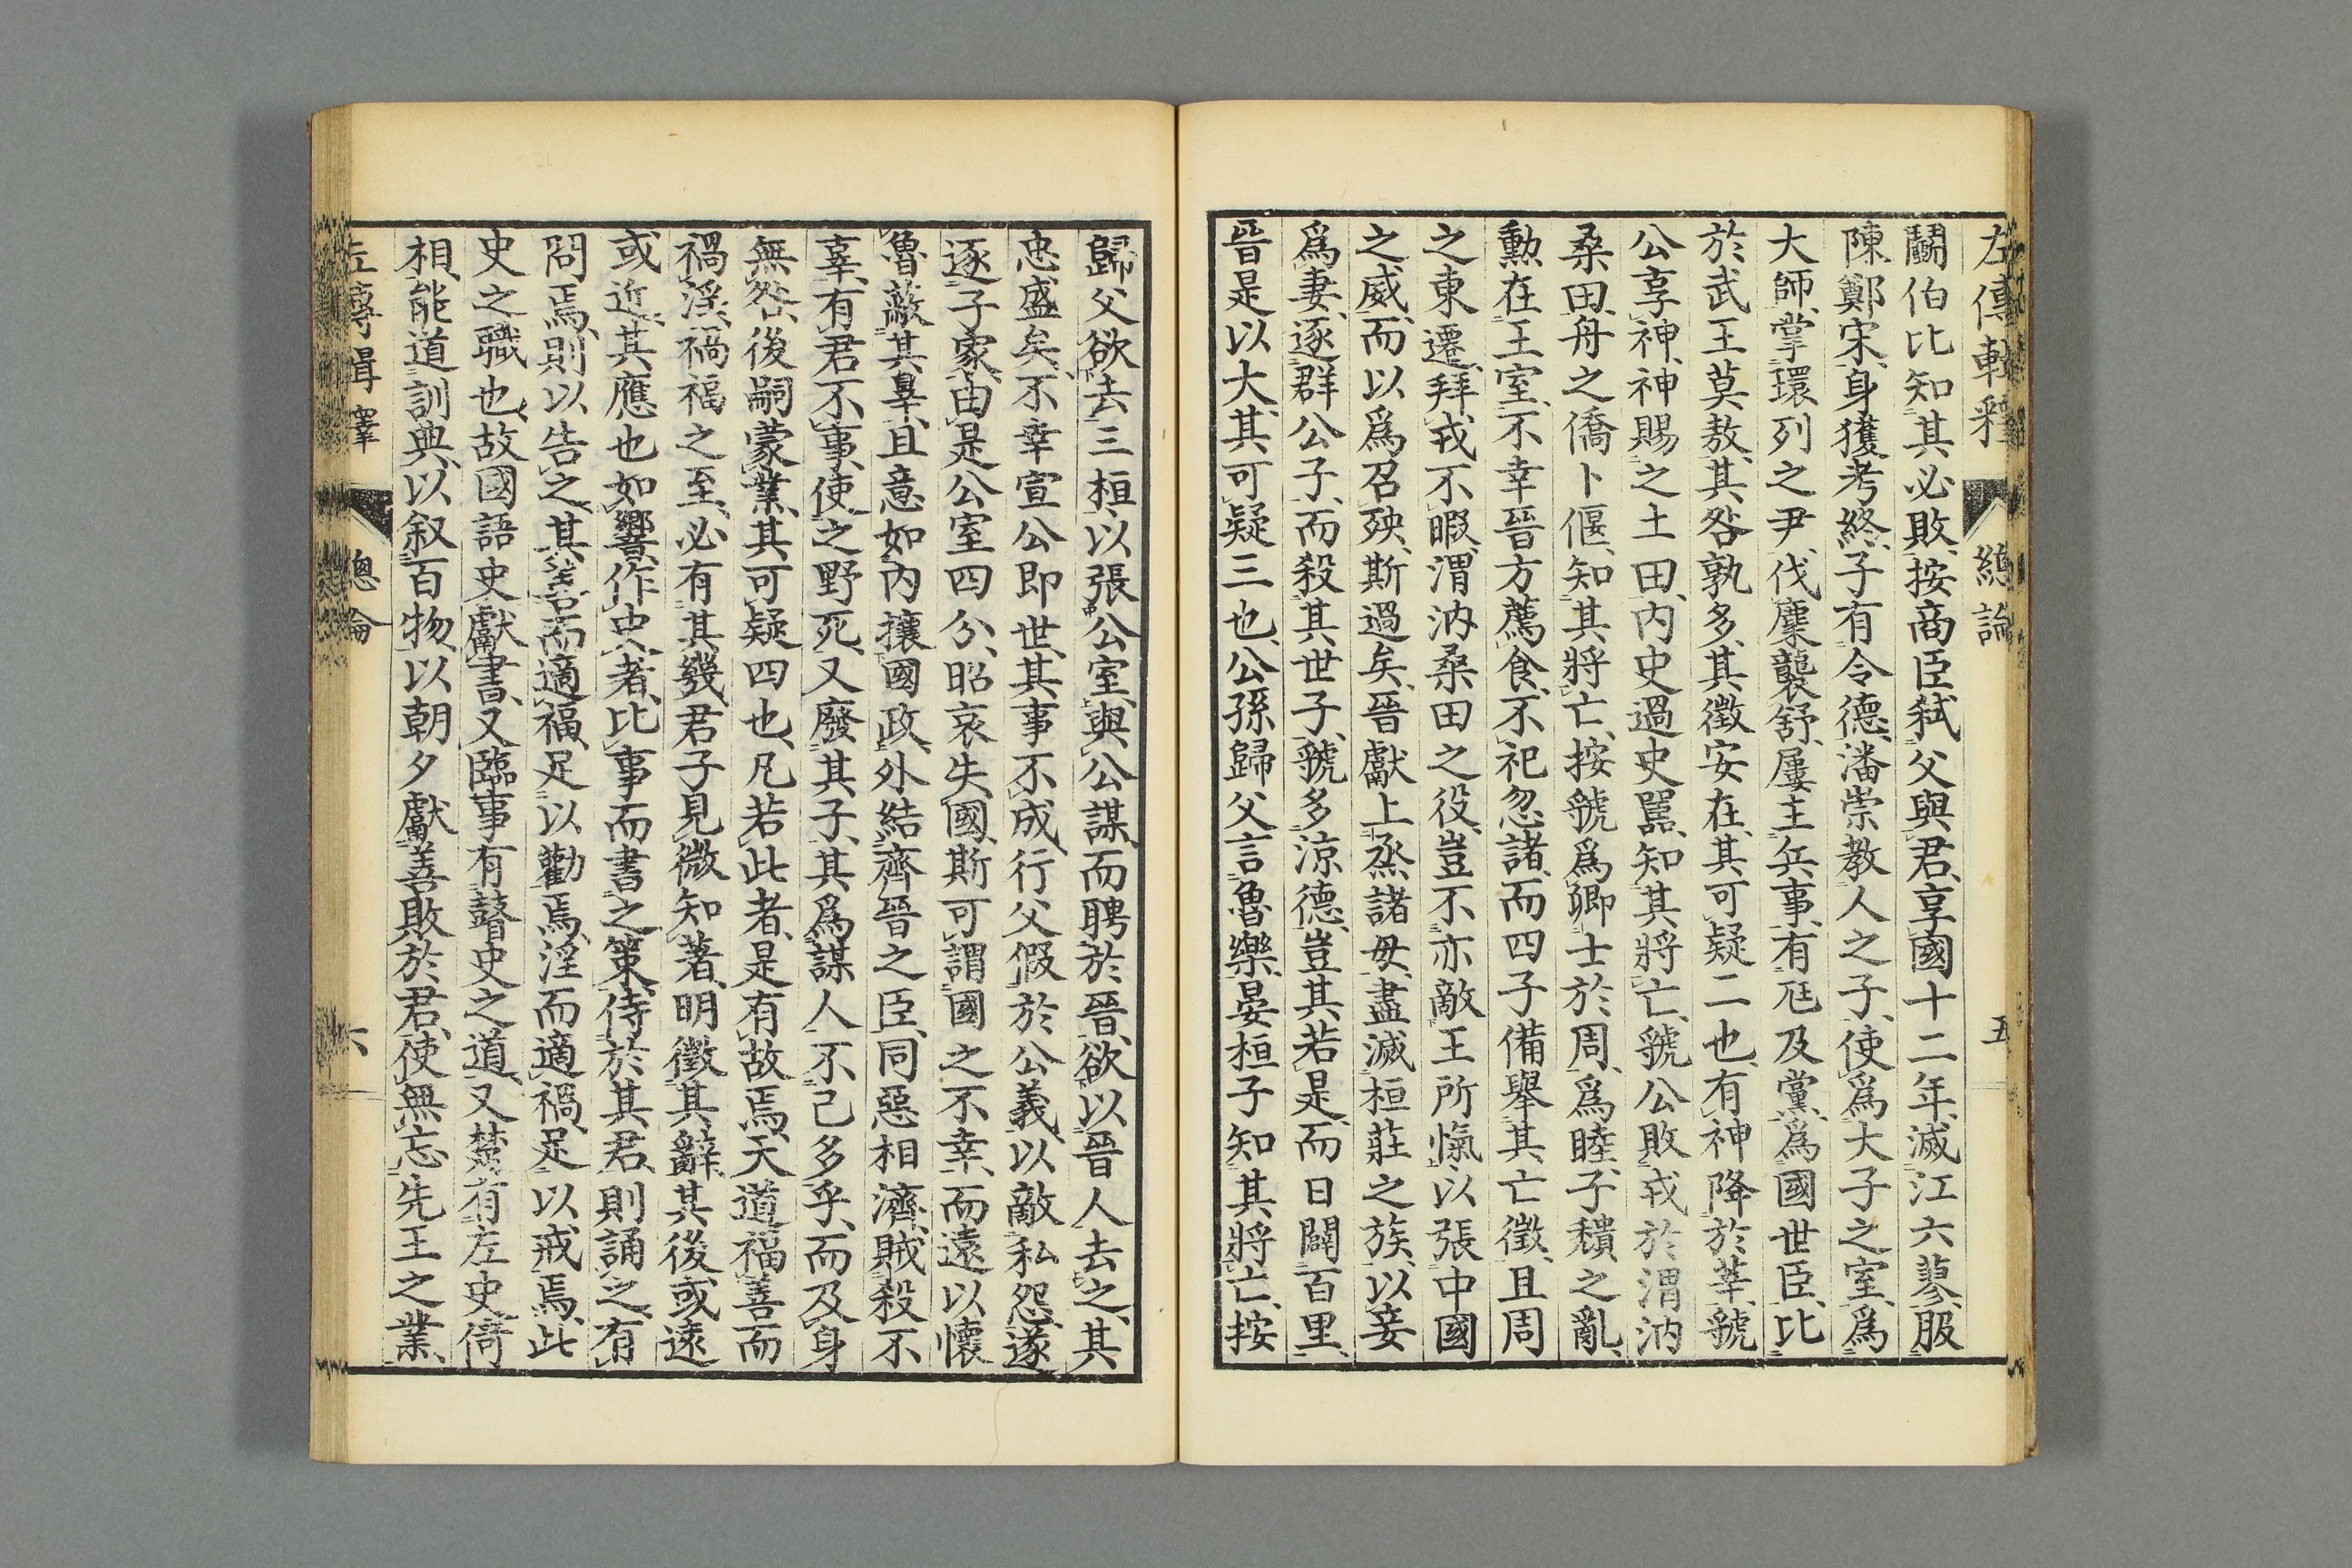 左傳輯釋 總論 五
鬭伯比知其必敗、按商臣弑父與君、享國十二年、滅江六蓼、服
陳鄭宋、身獲考終、子有令德、潘崇教人之子、使爲大子之室、爲
大師、掌環列之尹、伐麇襲舒、屢主兵事、有尫及黨、爲國世臣、比
於武王莫敖、其咎孰多、其徵安在、其可疑二也、有神降於莘、虢
公享神、神賜之土田、内史過史嚚、知其將亡、虢公敗戎於渭汭
桑田、舟之僑卜偃、知其將亡、按虢爲卿士於周、爲睦、子穨之亂、
勳在王室、不幸晉方薦食、不祀忽諸、而四子備舉其亡徵、且周
之東遷、拜戎不暇、渭汭桑田之役、豈不亦敵王所愾、以張中國
之威、而以爲召殃、斯過矣、晉獻上烝諸母、盡滅桓莊之族、以妾
爲妻、逐群公子、而殺其世子、虢多涼德、豈其若是、而日闢百里、
晉是以大、其可疑三也、公孫歸父言魯樂、晏桓子知其將亡、按
歸父欲去三桓、以張公室、與公謀、而聘於晉、欲以晉人去之、其
忠盛矣、不幸宣公即世、其事不成、行父假於公義、以敵私怨、遂
逐子家、由是公室四分、昭哀失國、斯可謂國之不幸、而遠以懷
魯蔽其辠、且意如内攘國政、外結齊晉之臣、同惡相濟、賊殺不
辜、有君不事、使之野死、又廢其子、其爲謀人不已多乎、而及身
無咎、後嗣蒙業、其可疑四也、凡若此者、是有故焉、天道福善而
禍淫、禍福之至、必有其幾、君子見微知著、明徵其辭、其後或遠
或近、其應也如響、作史者、比事而書之策、侍於其君、則誦之、有
問焉、則以告之、其善而適福、足以勸焉、淫而適禍、足以戒焉、此
史之職也、故國語史獻書、又臨事有瞽史之道、又楚有左史倚
相、能道訓典、以叙百物、以朝夕獻善敗於君、使無忘先王之業、
左傳輯釋 總論 六